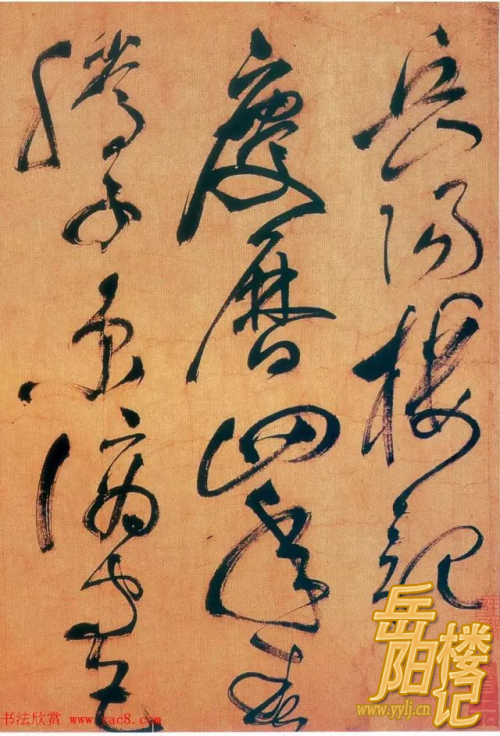 岳阳楼记
慶曆四年春
滕子京谪守巴
岳阳楼记
www.yylj.cn
书法欣赏 www.yac8.com